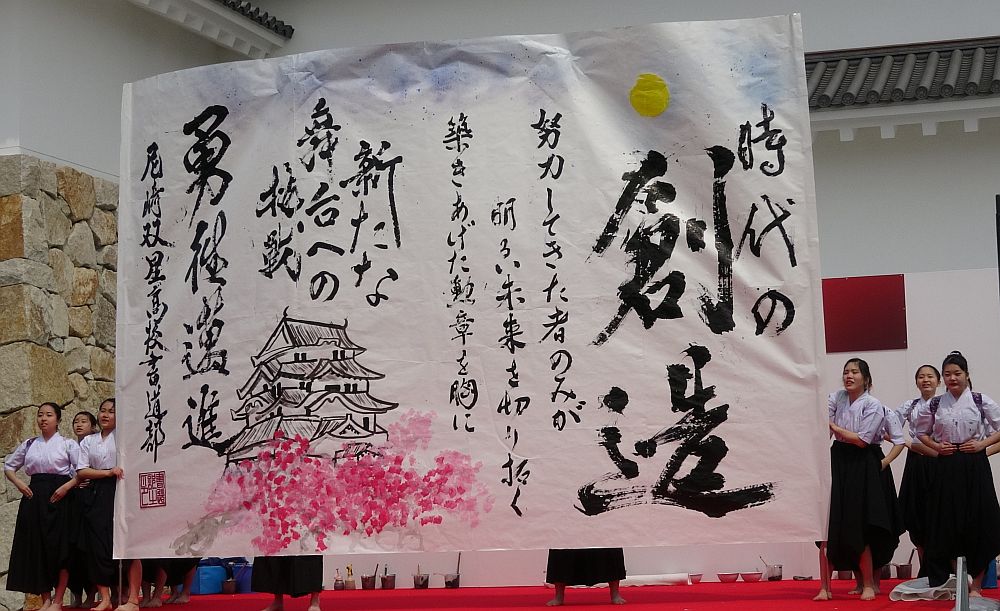 時代の
創造
努力してきた者のみが
明るい未来を切り拓く
築きあげた勲章を胸に
新たな
舞台への
挑戦
勇往邁進
尼崎双星高校書道部